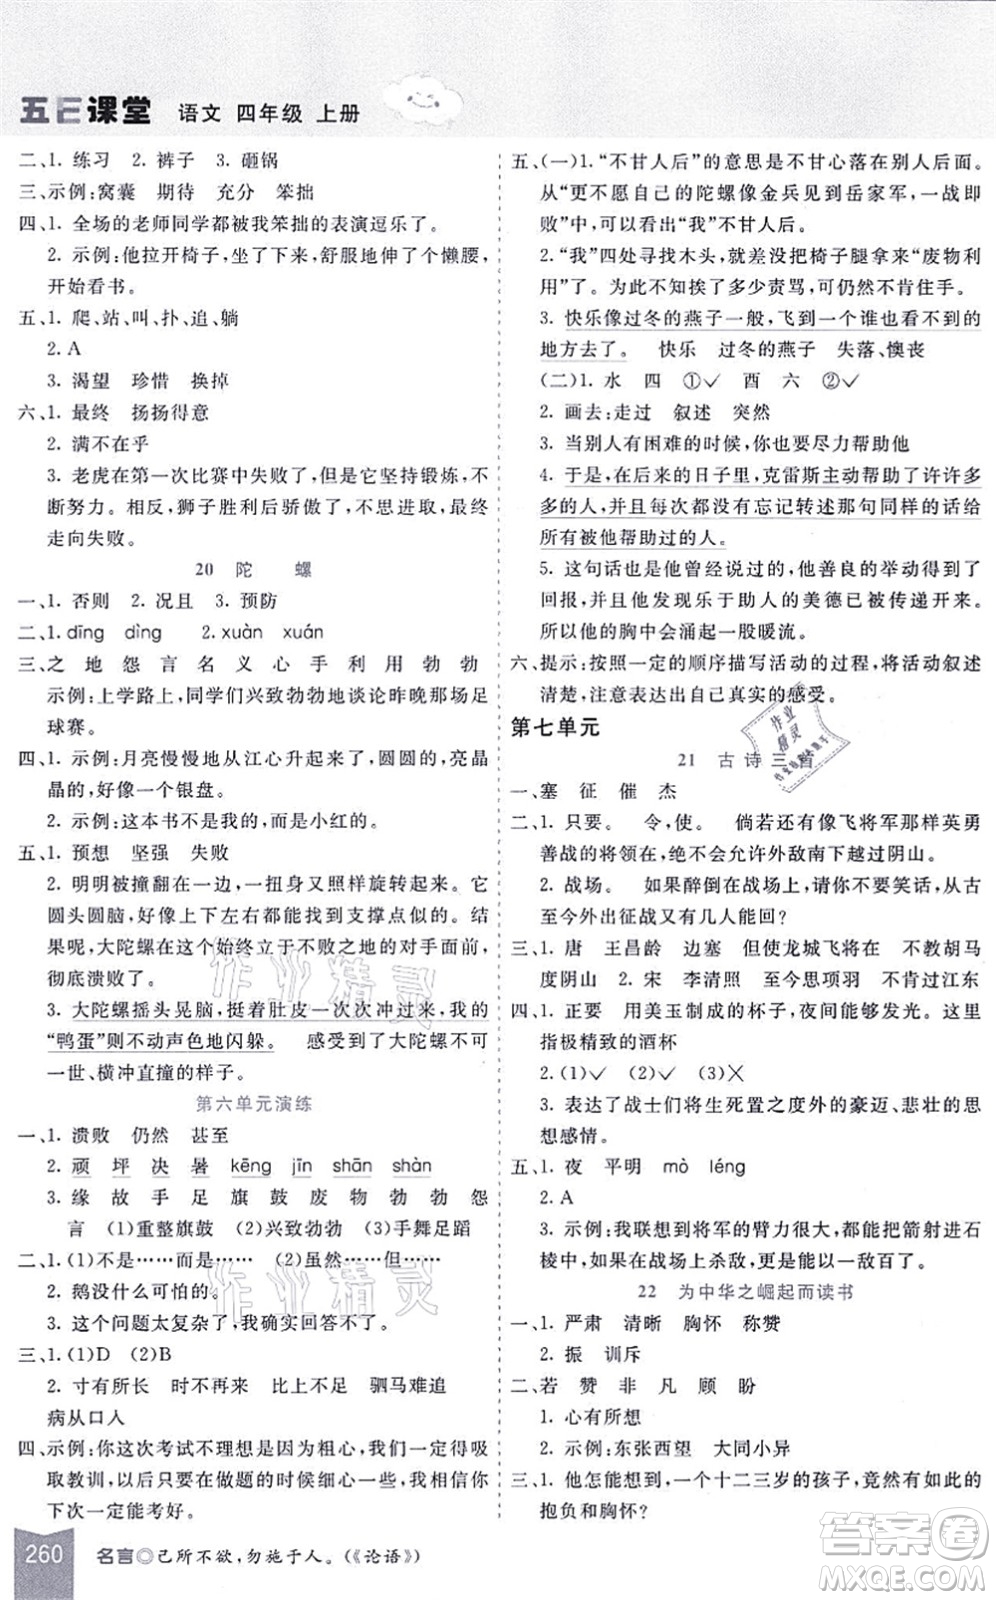 五E课堂 语文 四年级 上册
二、1. 练习 2. 裤子 3. 砸锅
三、示例:窝囊 期待 充分 笨拙
四、1. 全场的老师同学都被我笨拙的表演逗乐了。
2. 示例:他拉开椅子,坐了下来,舒服地伸了个懒腰,
开始看书。
五、1. 爬、站、叫、扑、追、躺
2. A
3. 渴望 珍惜 换掉
六、1. 最终 扬扬得意
2. 满不在乎
3. 老虎在第一次比赛中失败了,但它坚持锻炼,不
断努力。相反,狮子胜利后骄傲了,不思进取,最终
走向失败。
20 陀 螺
一、1. 否则 2. 况且 3. 预防
二、1. dīng dìng 2. xuàn xuán
三、之 地 怨 言 名 义 心 手 利 用 勃 勃
示例:上学路上,同学们兴致勃勃地谈论昨晚那场足
球赛。
四、1. 示例:月亮慢慢地从江心升起来了,圆圆的,亮晶
晶的,好像一个银盘。
2. 示例:这本书不是我的,而是小红的。
五、1. 预想 坚强 失败
2. 明明被撞翻在地,一扭身又照样旋转起来。它
圆头圆脑,好像上下左右都能找到支撑点似的。结
果呢,大陀螺在这个始终立于不败之地的对手面前,
彻底溃败了。
3. 大陀螺摇头晃脑,挺着肚皮一次次冲过来,我的
“鸭蛋”则不动声色地闪躲。 感受到了大陀螺不可
一世、横冲直撞的样子。
第六单元演练
一、1. 溃败 仍然 甚至
2. 顽 坪 决 暑 kēng jīn shān shàn
3. 缘 故 手 足 旗 鼓 废 物 勃 勃 怨
言 (1)重整旗鼓 (2)兴致勃勃 (3)手舞足蹈
二、1. (1)不是……而是…… (2)虽然……但……
2. 鹅没什么可怕的。
3. 这个问题太复杂了,我确实回答不了。
三、1. (1)D (2)B
2. 寸有所长 时不再来 金石为开 驷马难追
病从口入
四、示例:你这次考试不理想是因为粗心,一定得吸
取教训,以后在做题的时候细心一些,我相信你
下次一定能考好。
260 名言◎己所不欲,勿施于人。(《论语》)
五、(一)1. “不甘人后”的意思是不甘心落在别人后面。
从“更不愿自己的陀螺像金兵见到岳家军,一战即
败”中,可以看出“我”不甘人后。
2. “我”四处寻找木头,就差没把椅子腿拿来“废物利
用”了。为此我不知挨了多少责骂,可仍然不肯住手。
3. 快乐像过冬的燕子一般,飞到一个谁也看不到的
地方去了。 快乐 过冬的燕子 失落、懊丧
(二)1. 水 四 ①✓ 酉 六 ②✓
2. 画去:走过 叙述 突然
3. 当别人有困难的时候,你也要尽力帮助他
4. 于是,在后来的日子里,克雷斯主动帮助了许许多
多的人,并且每次都没有忘记转述那句同样的话给
所有被他帮助过的人。
5. 这句话是他曾经说过的,他善良的举动得到了
回报,并且他发现乐于助人的美德已被传递开来。
所以他的胸中会涌起一股暖流。
六、提示:按照一定的顺序描写活动的过程,将活动叙述
清楚,注意表达出自己真实的感受。
第七单元
21 古诗三首
一、塞 征 催 杰
二、1. 只要。 令,使。 倘若还有像飞将军那样英勇
善战的将领在,绝不会允许外敌南下越过阴山。
2. 战场。 如果醉倒在战场上,请你不要笑话,从古
至今外出征战又有几人能回?
三、1. 唐 王昌龄 边塞 但使龙城飞将在 不教胡马
度阴山 2. 宋 李清照 至今思项羽 不肯过江东
四、1. 正要 用美玉制成的杯子,夜间能够发光。这里
指极精致的酒杯
2. (1)✓ (2)✓ (3)✗
3. 表达了战士们将生死置之度外的豪迈、悲壮的思
想感情。
五、1. 夜 平明 mò léng
2. A
3. 示例:我联想到将军的臂力很大,都能把箭射进石
棱中,如果在战场上杀敌,更是勇猛无比。
22 为中华之崛起而读书
一、1. 严肃 清晰 胸怀 称赞
2. 振 训斥
二、若 赞 非 凡 顾 盼
1. 心有所想
2. 示例:东张西望 大同小异
三、1. 他怎能想到,一个十二三岁的孩子,竟然有如此的
抱负和胸怀?
作业精灵
作业精灵
作业
精灵
答案圈
MXQE.COM